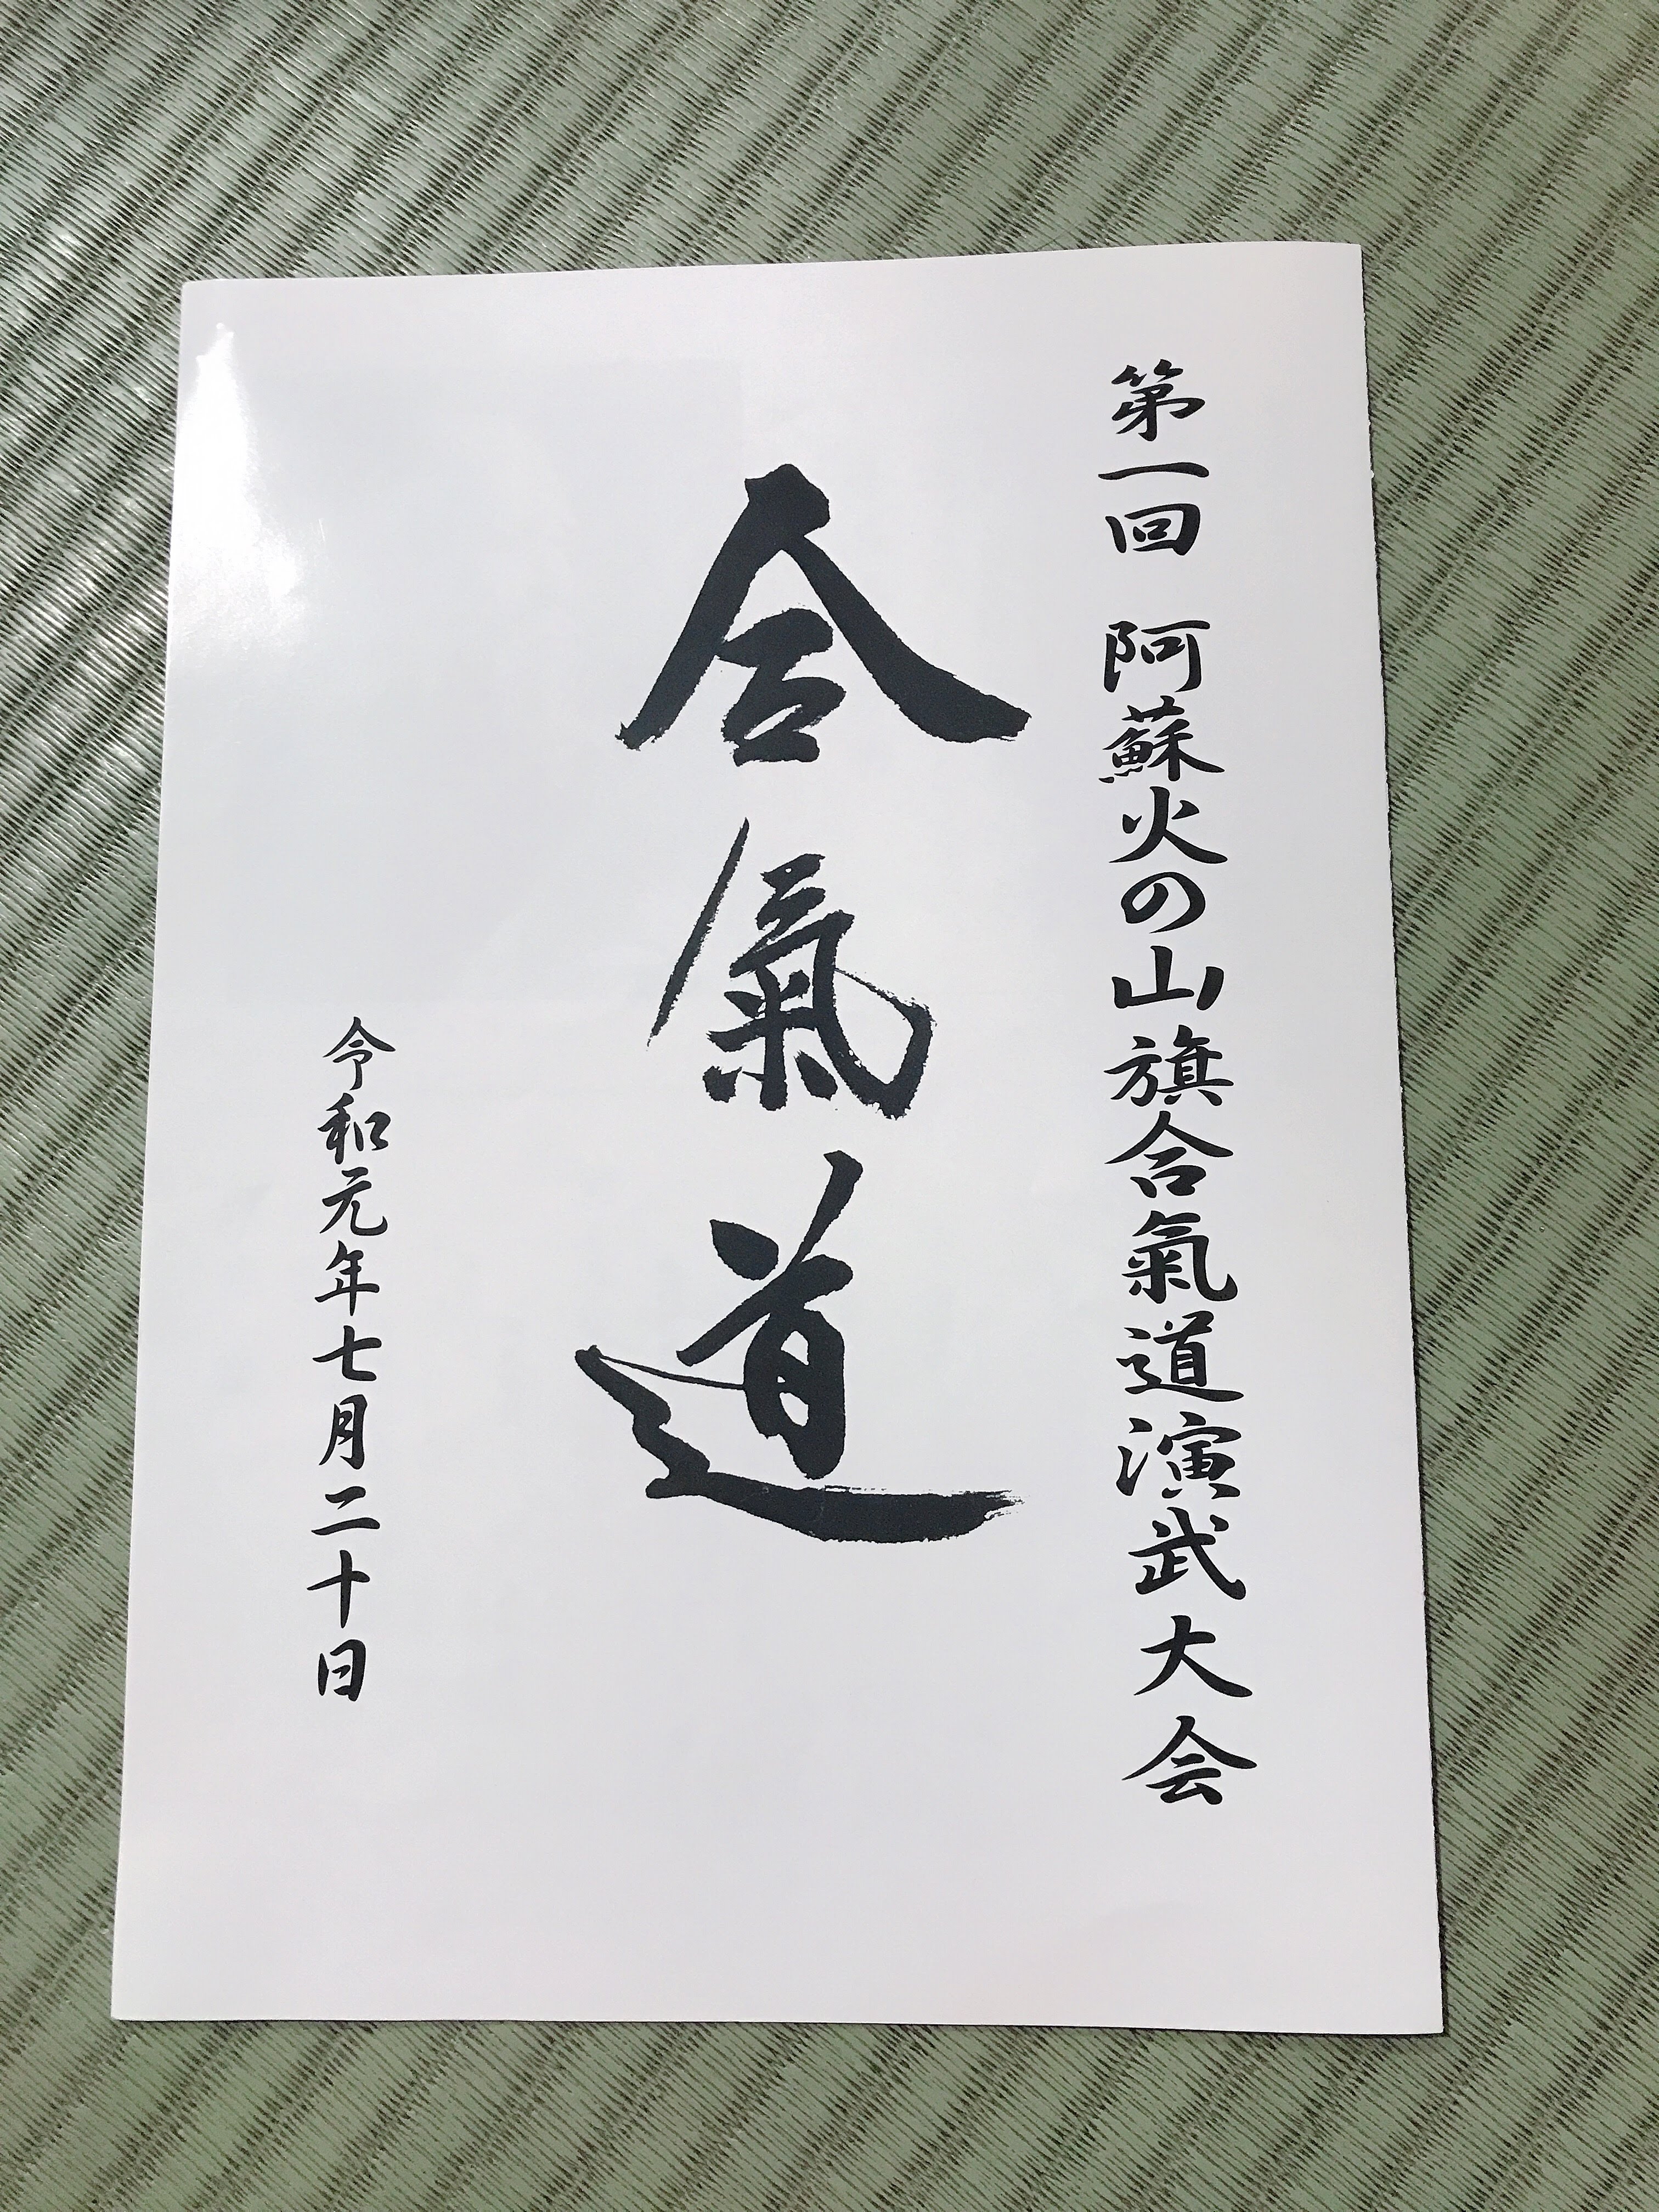 第一回 阿蘇火の山旗合氣道演武大会
合氣道
令和元年七月二十日